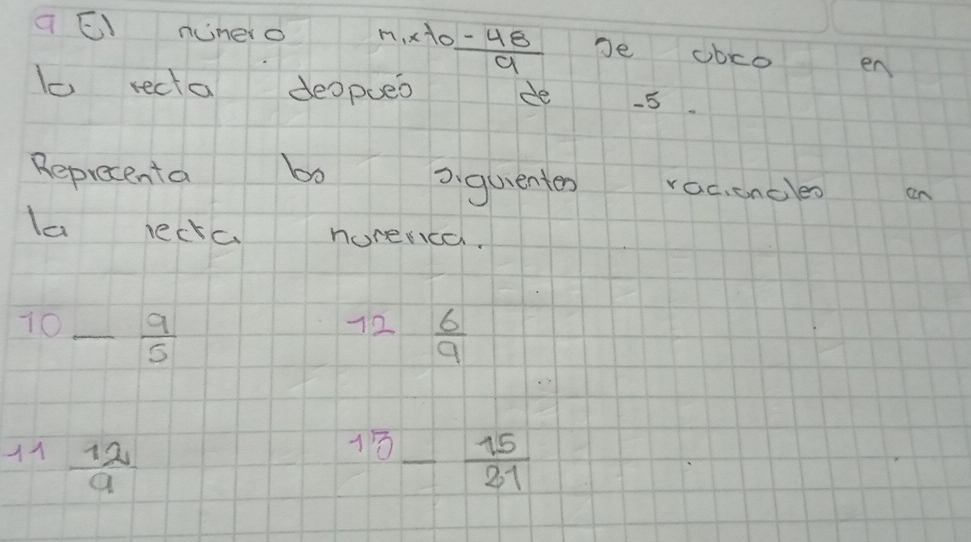 9 El número mixto -48/9 se ubica en
la recta después de -5.
Representa los siguientes racionales en
la recta numerica.
10 - 9/5 12 6/9
11 12/9 13 - 15/21